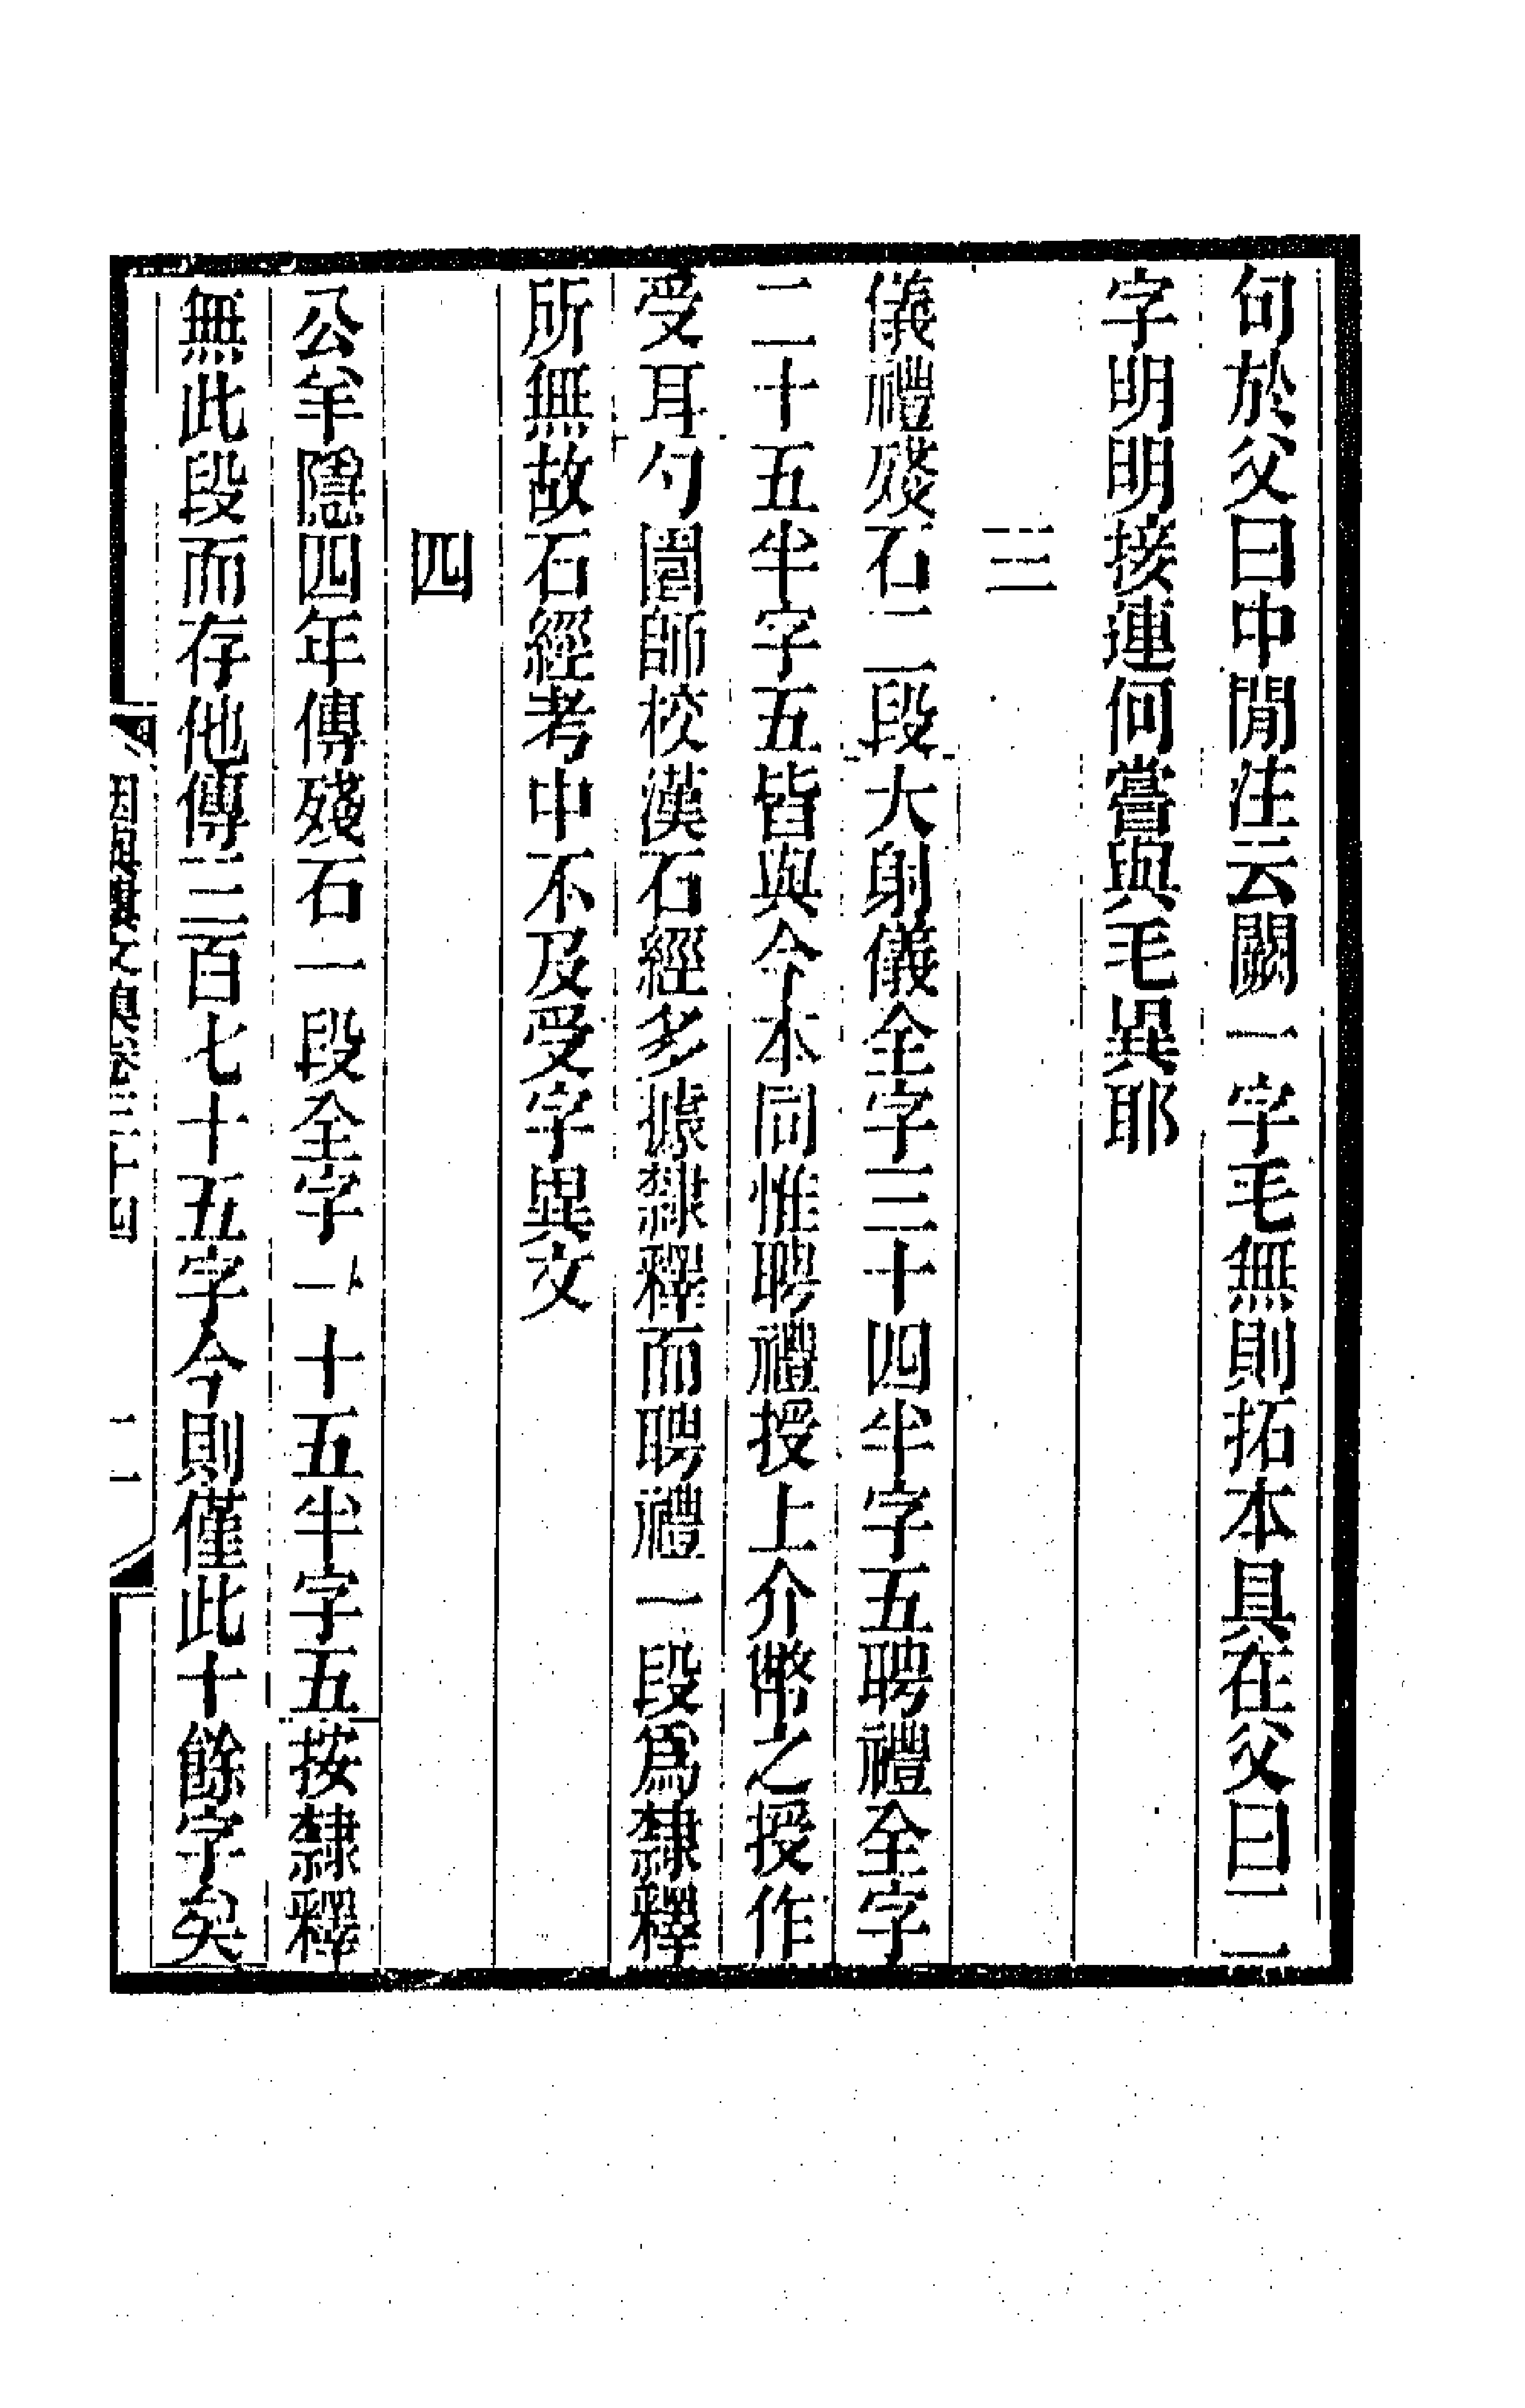 句於父曰中閒注云闕一字毛無則拓本具在父曰二
字明明接連何嘗與毛異耶
三
儀禮殘石二段大射儀全字三十四半字五聘禮全字
二十五半字五皆與今本同惟聘禮授上介幣之授作
受耳勺園師校漢石經多據隸釋而聘禮一段爲隸釋
所無故石經考中不及受字異文
四
公羊隱四年傳殘石一段全字一十五半字五按隸釋
無此段而存他傳三百七十五字今則僅此十餘字矣
卷三十四
二